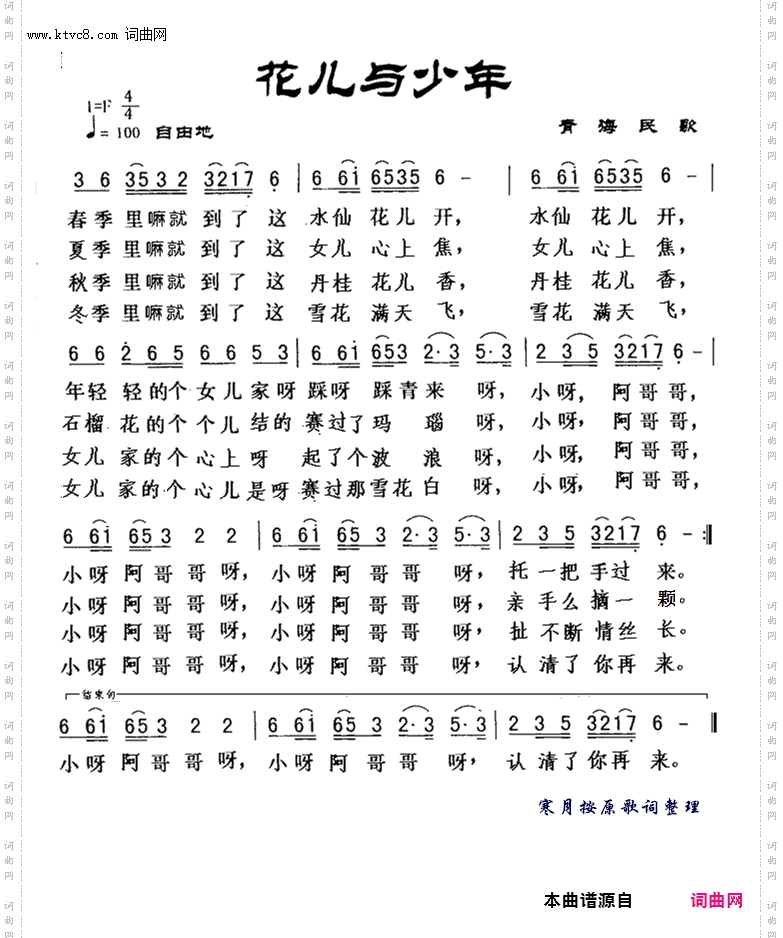 www.ktvc8.com 词曲网
花儿与少年
1=F 4/4
♩=100 自由地
青海民歌
3 6 3532 3217 6 | 6 6i 6535 6 - | 6 6i 6535 6 - |
春季里嘛就到了这 水仙花儿开, 水仙花儿开,
夏季里嘛就到了这 女儿心上焦, 女儿心上焦,
秋季里嘛就到了这 丹桂花儿香, 丹桂花儿香,
冬季里嘛就到了这 雪花满天飞, 雪花满天飞,
6 6 2 6 5 6 6 5 3 | 6 6i 653 2·3 5·3 | 2 35 3217 6 - |
年轻轻的个女儿家呀踩呀踩青来呀, 小呀, 阿哥哥,
石榴花的个个儿结的赛过了玛瑙呀, 小呀, 阿哥哥,
女儿家的个心上呀起了个波浪呀, 小呀, 阿哥哥,
女儿家的个心儿是呀赛过那雪花白呀, 小呀, 阿哥哥,
6 6i 65 3 2 2 | 6 6i 65 3 2·3 5·3 | 2 3 5 3217 6 - :‖
小呀阿哥哥呀, 小呀阿哥哥呀, 托一把手过来。
小呀阿哥哥呀, 小呀阿哥哥呀, 亲手么摘一颗。
小呀阿哥哥呀, 小呀阿哥哥呀, 扯不断情丝长。
小呀阿哥哥呀, 小呀阿哥哥呀, 认清了你再来。
结束句
6 6i 65 3 2 2 | 6 6i 65 3 2·3 5·3 | 2 35 3217 6 - ‖
小呀阿哥哥呀, 小呀阿哥哥呀, 认清了你再来。
寒月按原歌词整理
本曲谱源自 词曲网